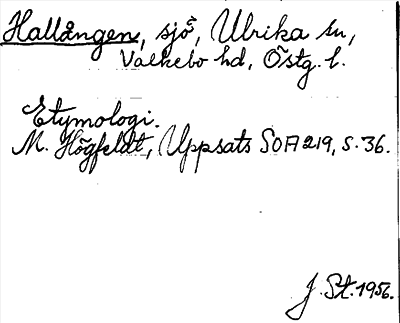 Hallången, sjö, Ulrika sn,
Valkebo hd, Östg. l.
Etymologi.
M. Högfeldt, Uppsats SOA 219, s. 36.
J. St. 1956.